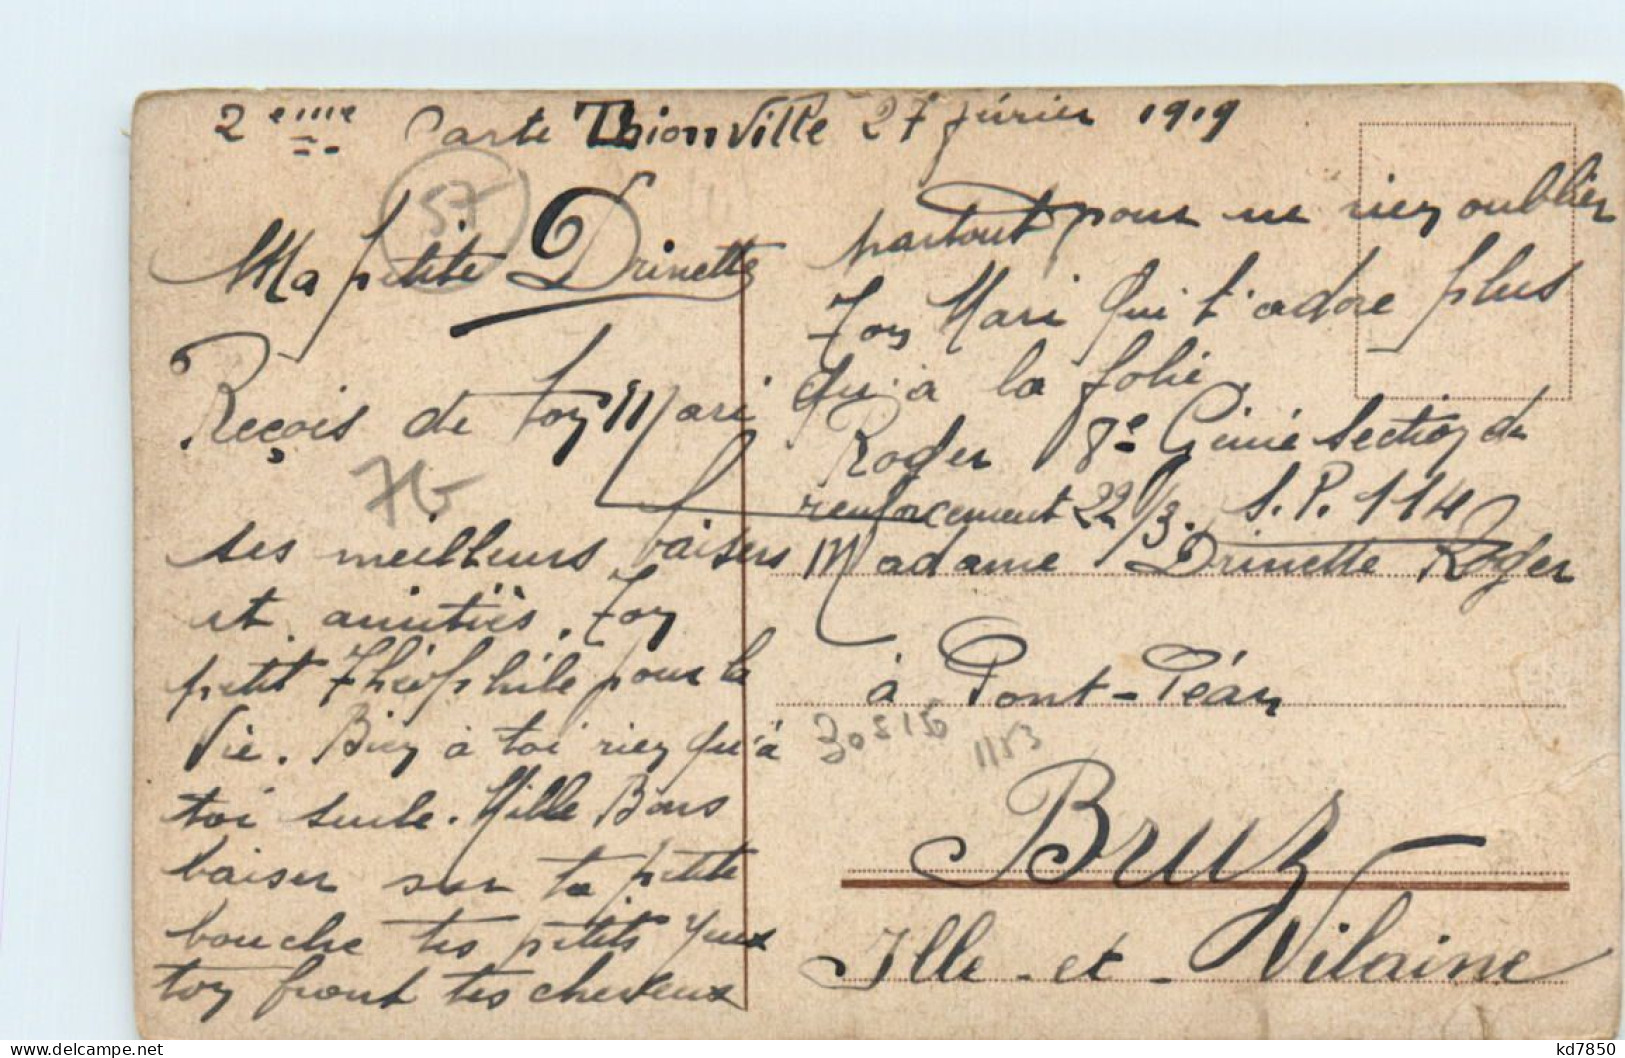 2eme Carte Thionville 27 févrièr 1919
57
Ma petite Drinette
Reçois de ton Mari
76
ses meilleurs baisers
et amitiès. Ton
petit Théophile pour la
Vie. Bien à toi rien qu'à
toi seule. Mille Bons
baiser sur ta petite
bouche tes petits yeux
ton front tes cheveux
partout pour ne rien oublier
Ton Mari Qui t'adore plus
Qu'à la folie.
Roger 8e Génie Section de
renforcement 22/3. S.P. 114
Madame Drinette Roger
à Pont-Péan
1153
Bruz
Ille-et-Vilaine
kd7850